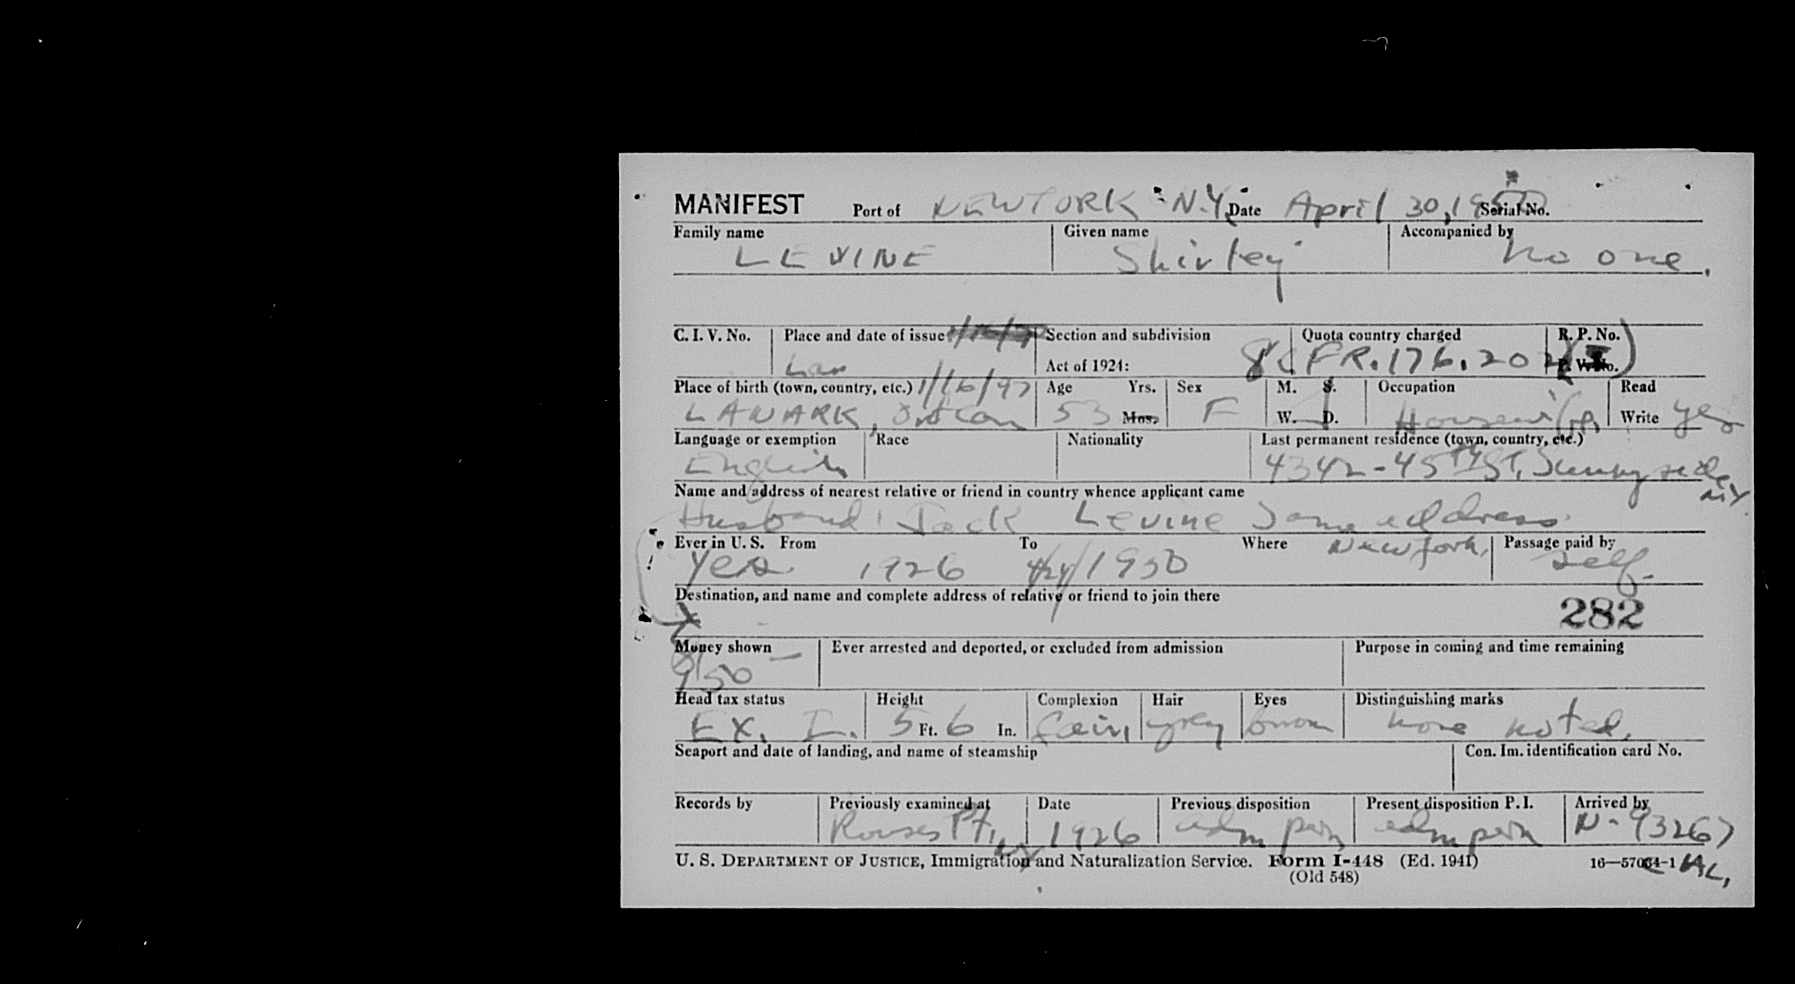 MANIFEST Port of NEW YORK N.Y. Date April 30, 1950 Serial No.
Family name Given name Accompanied by
LEVINE Shirley no one.
C. I. V. No. Place and date of issue Section and subdivision Quota country charged R. P. No.
Act of 1924: 8 CFR. 176.202 P. V. No.
Place of birth (town, country, etc.) 1/16/97 Age Yrs. Sex M. S. Occupation Read
LANARK, 53 Mos. F W. D. Housewife Write yes
Language or exemption Race Nationality Last permanent residence (town, country, etc.)
English 4342-45th ST, Sunnyside
N.Y.
Name and address of nearest relative or friend in country whence applicant came
Husband: Jack Levine Same address.
Ever in U. S. From To Where New York, Passage paid by
Yes 1926 4/24/1950 Self.
Destination, and name and complete address of relative or friend to join there
282
Money shown Ever arrested and deported, or excluded from admission Purpose in coming and time remaining
$150 —
Head tax status Height Complexion Hair Eyes Distinguishing marks
EX. I. 5 Ft. 6 In. fair grey brown none noted.
Seaport and date of landing, and name of steamship Con. Im. identification card No.
Records by Previously examined at Date Previous disposition Present disposition P. I. Arrived by
Rouses Pt, NY 1926 adm perm adm perm N-93267
U. S. DEPARTMENT OF JUSTICE, Immigration and Naturalization Service. Form I-448 (Ed. 1941) 16—57064-1
(Old 548)